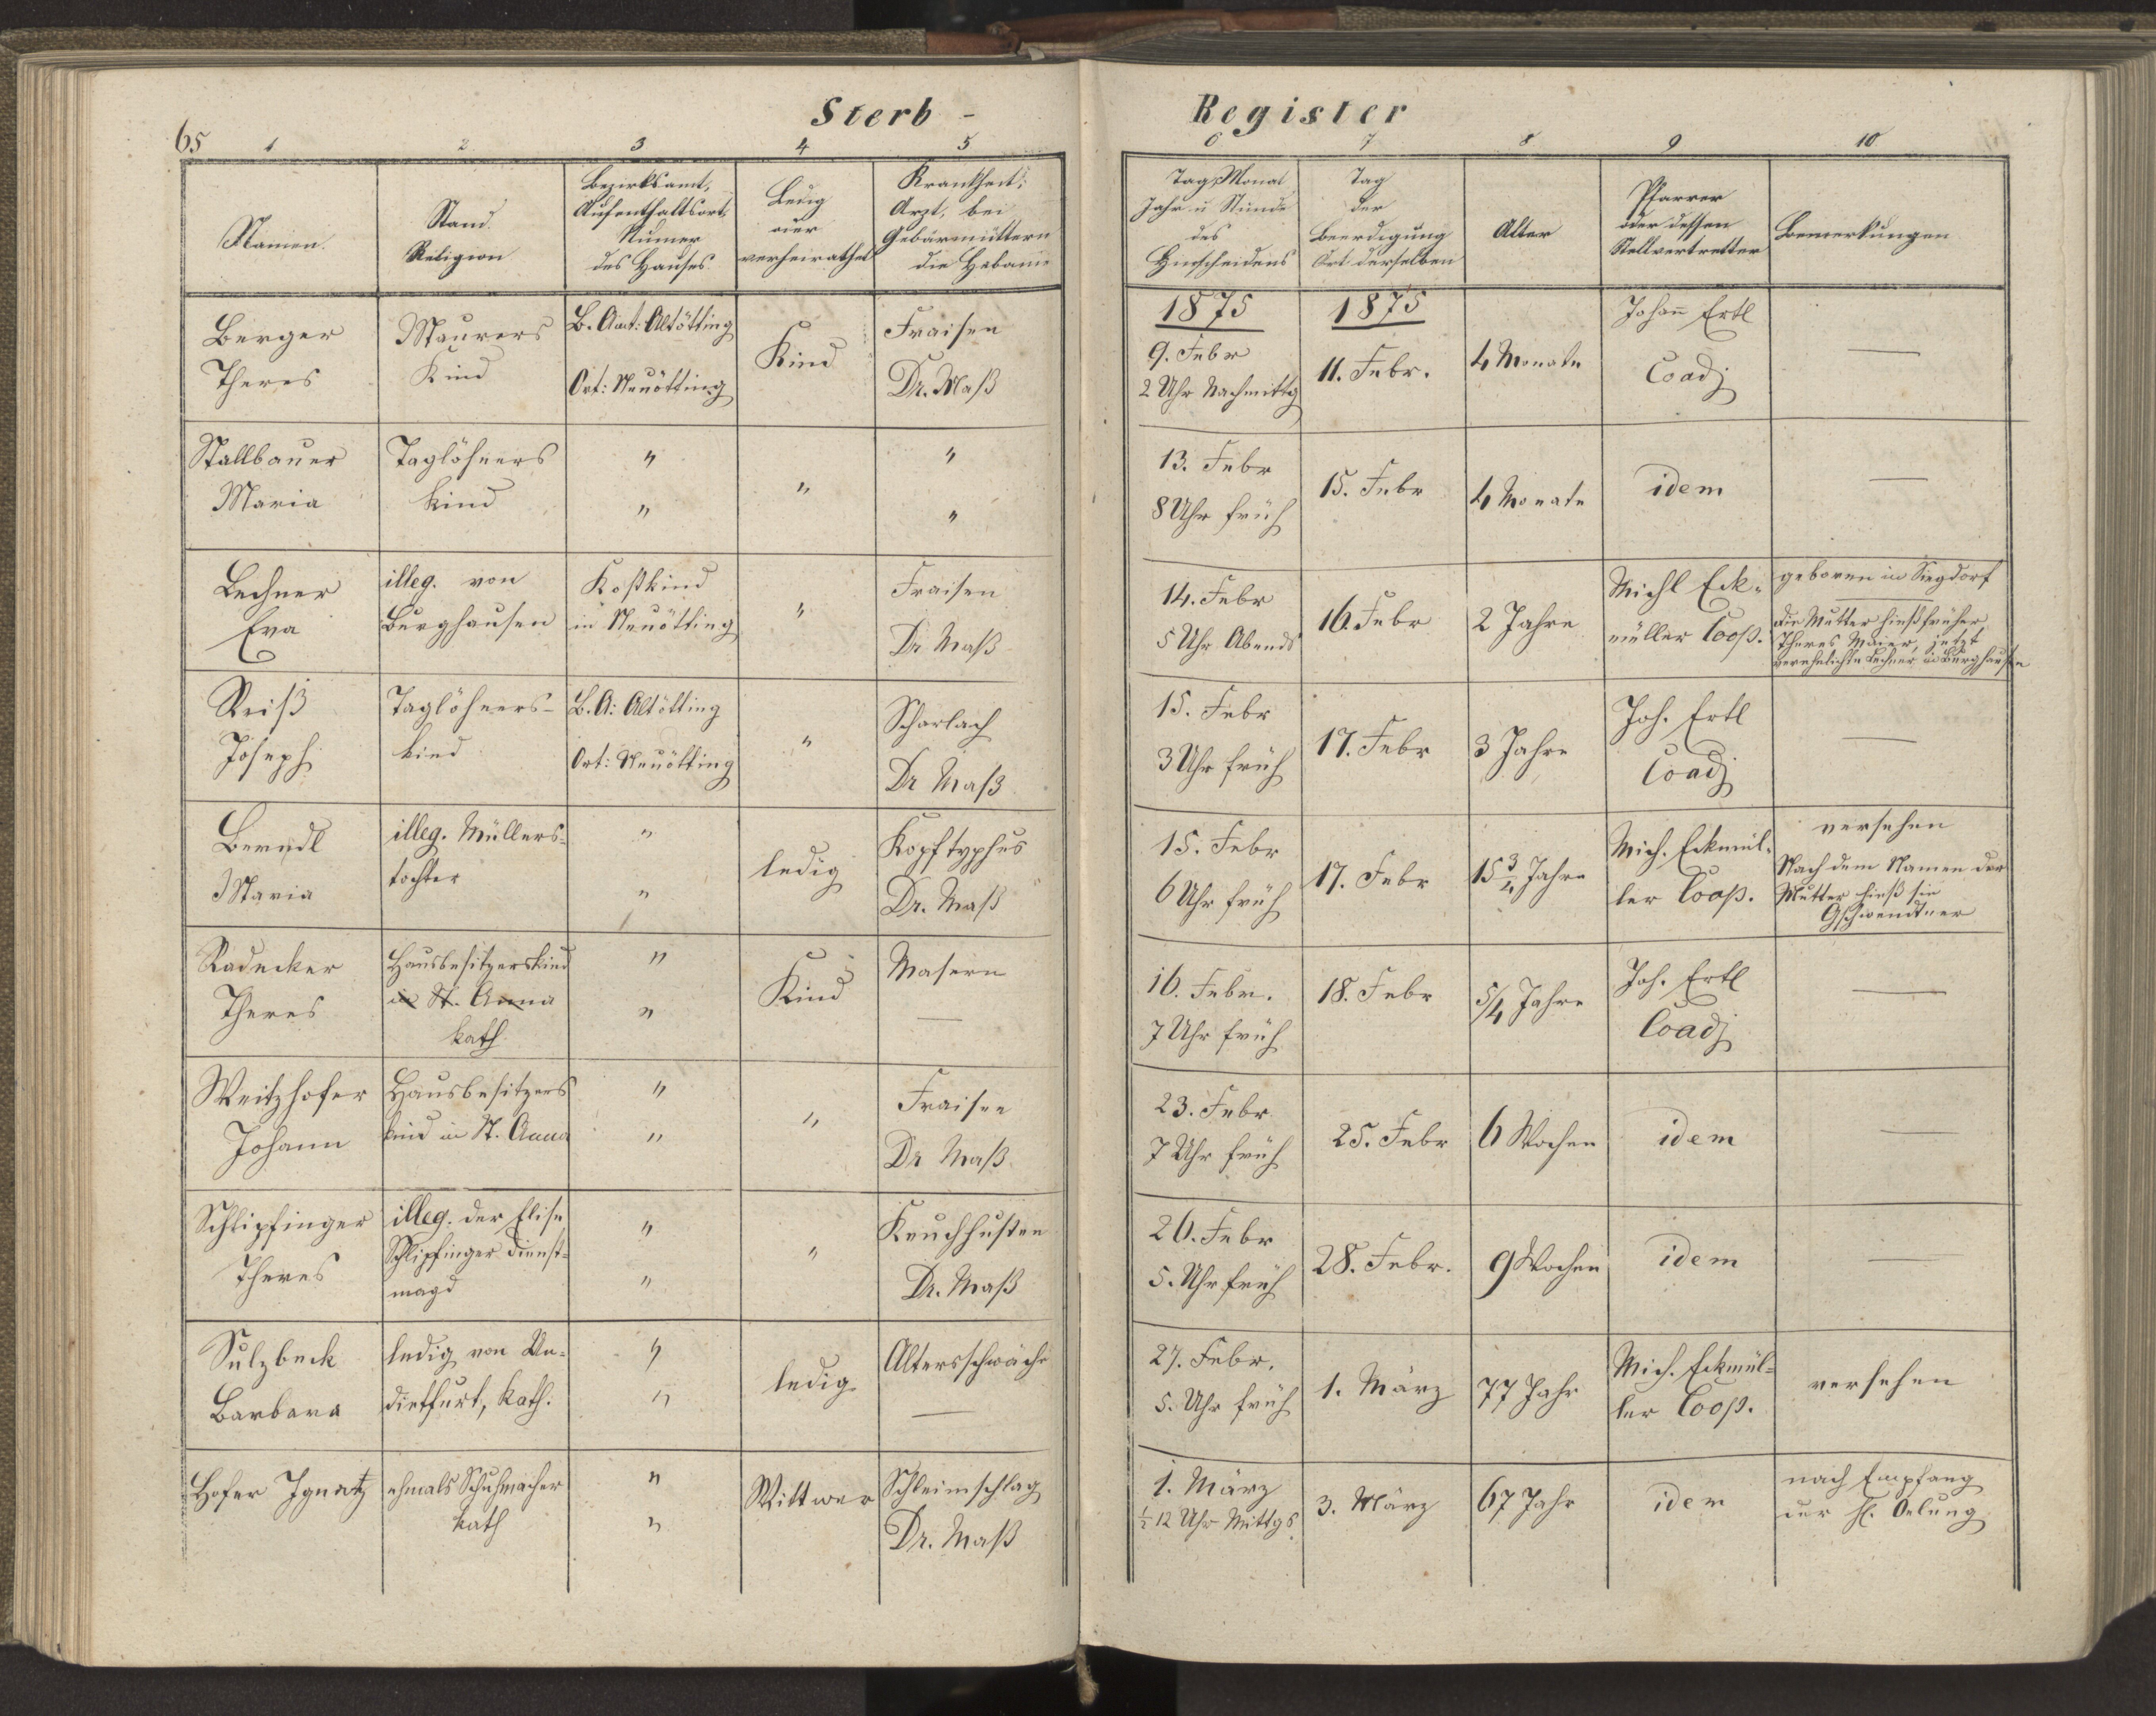 Sterb - Register
65 1 2 3 4 5 6 7 8 9 10
Namen.
Stand.
Religion
Bezirksamt,
Aufenthaltsort,
Numer
des Hauses
Ledig
oder
verheirathet
Krankheit;
Arzt, bei
Gebärmüttern
die Hebame
Tag, Monat
Jahr u Stunde
des
Hinscheidens
Tag
der
Beerdigung
Ort derselben
Alter
Pfarrer
oder dessen
Stellvertretter
Bemerkungen
Berger
Theres
Maurers
Kind
B. Amt: Altötting
Ort: Neuötting
Kind
Fraisen
Dr. Maß
1875
9. Febr
2 Uhr Nachmittg
1875
11. Febr.
4 Monate
Johann Ertl
Coadj
—
Stallbauer
Maria
Taglöhners
kind
"
"
"
"
"
13. Febr
8 Uhr früh
15. Febr
4 Monate
idem
—
Lechner
Eva
illeg. von
Burghausen
Kostkind
in Neuötting
"
Fraisen
Dr Maß
14. Febr
5 Uhr Abends
16. Febr
2 Jahre
Michl Eck-
müller Coop.
geboren in Siegdorf
die Mutter hieß früher
Theres Maier, jetzt
verehelichte Lechner in Burghausen
Reiß
Joseph
Taglöhners-
kind
B. A: Altötting
Ort: Neuötting
"
Scharlach
Dr Maß
15. Febr
3 Uhr früh
17. Febr
3 Jahre
Joh. Ertl
Coadj
—
Berndl
Maria
illeg. Müllers-
tochter
"
"
ledig
Kopftyphus
Dr. Maß
15. Febr
6 Uhr früh
17. Febr
15 3/4 Jahre
Mich. Eckmül-
ler Coop.
versehen
Nach dem Namen der
Mutter hieß sie
Gschwendtner
Radecker
Theres
Hausbesitzerskind
in St. Anna
kath.
"
"
Kind
Masern
—
16. Febr.
7 Uhr früh
18. Febr
5/4 Jahre
Joh. Ertl
Coadj
—
Weitzhofer
Johann
Hausbesitzers
kind in St. Anna
"
"
"
Fraisen
Dr Maß
23. Febr
7 Uhr früh
25. Febr
6 Wochen
idem
—
Schlipfinger
Theres
illeg. der Elise
Schlipfinger Dienst-
magd
"
"
"
Keuchhusten
Dr. Maß
26. Febr
5. Uhr früh
28. Febr.
9 Wochen
idem
—
Sulzbeck
Barbara
ledig von Un-
dietfurt, kath.
"
"
ledig
Altersschwäche
—
27. Febr.
5. Uhr früh
1. März
77 Jahr
Mich. Eckmül-
ler Coop.
versehen
Hofer Ignatz
ehmals Schuhmacher
kath
"
"
Wittwer
Schleimschlag
Dr. Maß
1. März
1/2 12 Uhr Mittgs
3. März
67 Jahr
idem
nach Empfang
der hl. Oelung